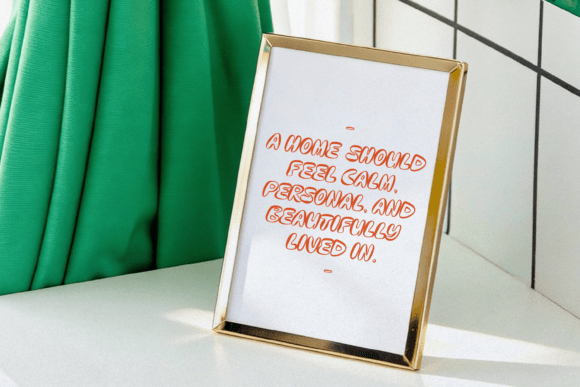 A HOME SHOULD
FEEL CALM,
PERSONAL, AND
BEAUTIFULLY
LIVED IN.